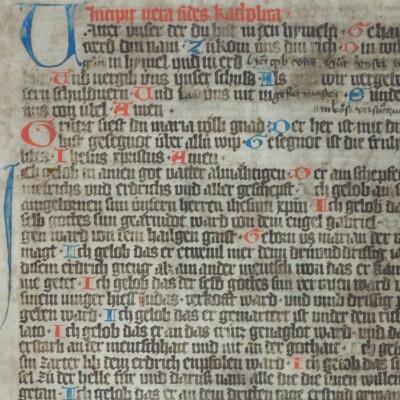 Incipit vera fides katholica ·
Uatter vnser der du bist in den hymeln · Gehai
werd din nam · Zukom vns din rich · Din wil
in hymel vnd in erd
Vnd vergib vns vnser schuld · Als wir vergebe
ern schuldnern · Vnd lass vns nit in · Sunder
vns von übel · Amen ·
Grüest siest du maria voll gnad · Der her ist mit dir
bist gesegnot über allu wip · Gesegnot ist die fruh
libes · Jhesus xpistus · Amen ·
Ich gelob in ainen got vatter almähtigen · Der ain schepfer
himelrichs vnd erdrichs vnd aller geschepft · Ich gelob an sin
aingebornen sun vnsern herren ihesum xpm · Ich gelob das
selb gottes sun gekündet ward von dem engel gabriel ·
gen ward von dem hailgen gaist · Geborn vs marian der
magt · Ich gelob das er
disem erdrich gieng als ain ander mensch won das er kain
nie getet · Ich gelob das der selb gottes sun verraten ward
sinem iunger hiess iudas · verkoft ward · vnd vmb drissig
geben ward · Ich gelob das er gemartret ist vnder dem rich
lato · Ich gelob das er an das crütz genaglot ward · vnd da
erstarb an der menschhait vnd nit an der gothait · Ich gelob
sin zarter lib dem erdrich enpfolen ward · Ich gelob das sin
sel zu der helle für vnd darus nam alle die die sinen willen
getan · Ich gelob das er an dem dritten tage erstund gewar